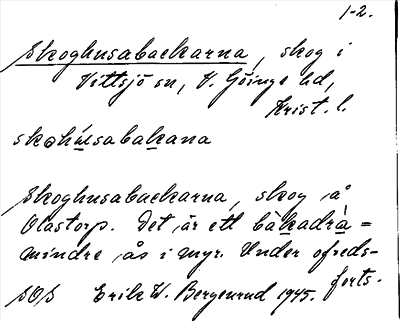 1-2.
Skoghusabackarna, skog i
Vittsjö sn, V. Göinge hd,
Krist. l.
skohúsabakana
Skoghusabackarna, skog å
Olastorp. Det är ett bàkadrà =
mindre ås i myr. Under ofreds-
ferts.
SOS Erik W. Bergenrud 1945.